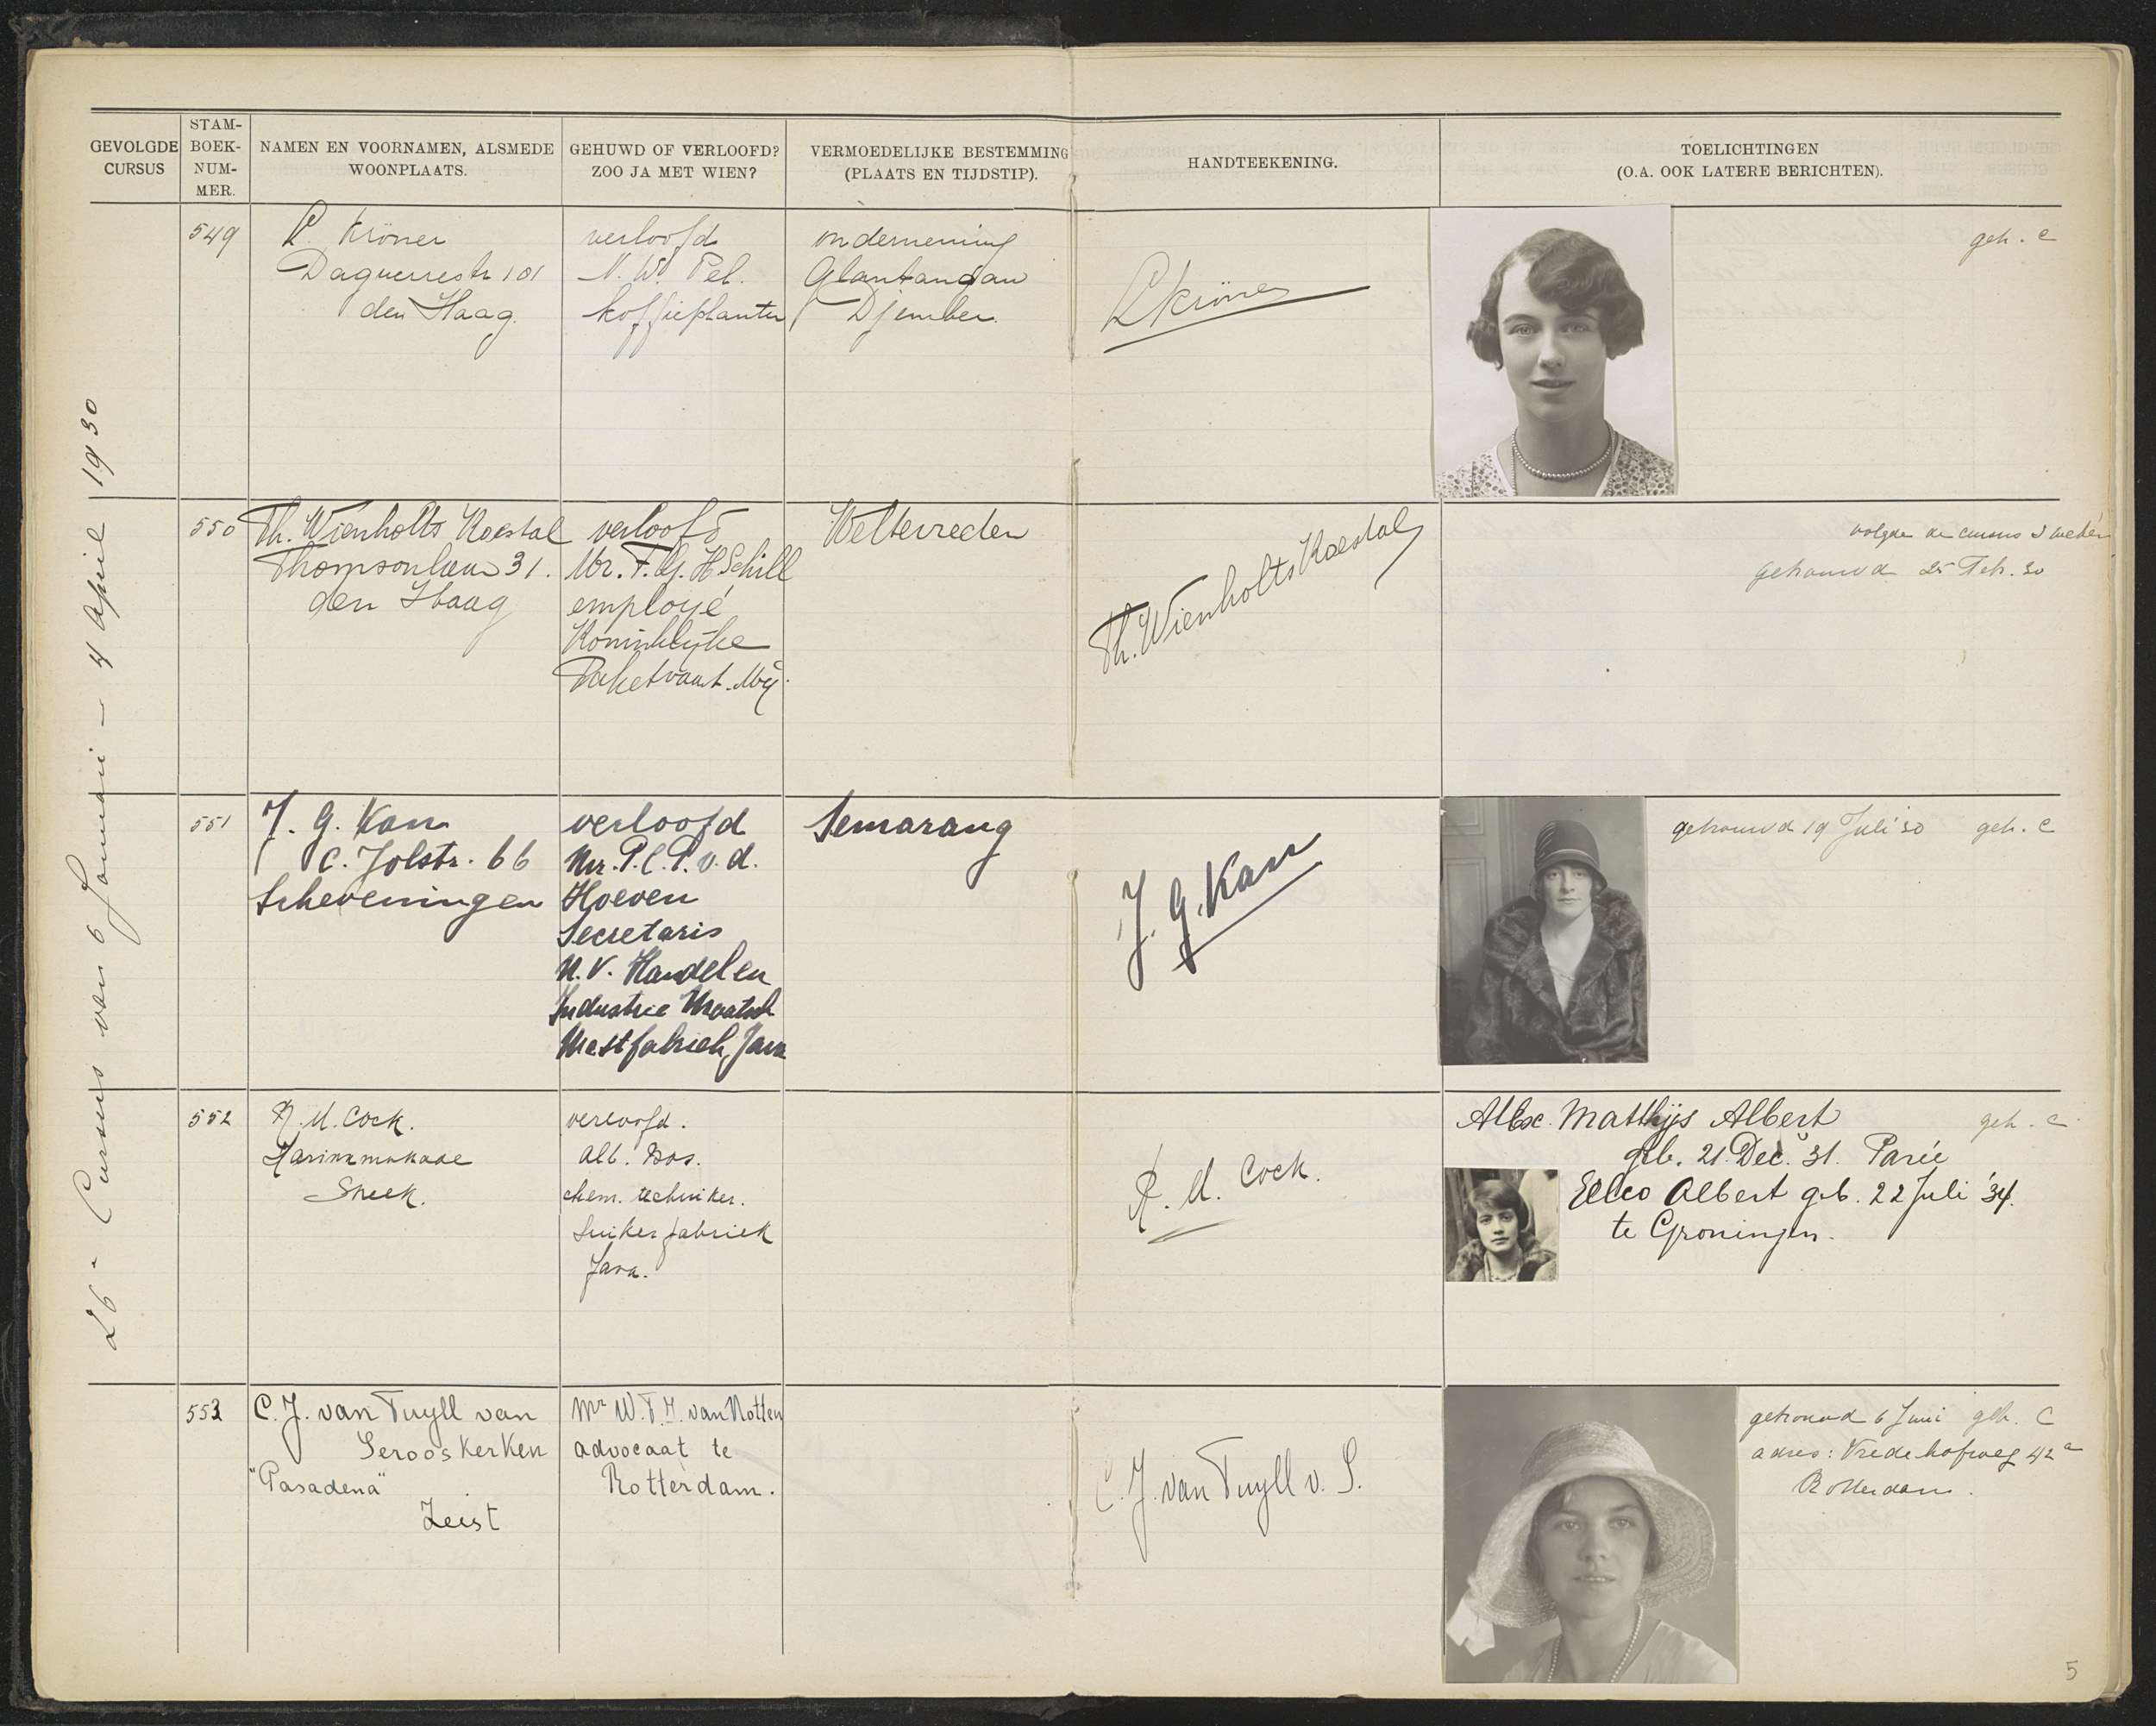 GEVOLGDE
CURSUS
STAM-
BOEK-
NUM-
MER.
NAMEN EN VOORNAMEN, ALSMEDE
WOONPLAATS.
GEHUWD OF VERLOOFD?
ZOO JA MET WIEN?
VERMOEDELIJKE BESTEMMING
(PLAATS EN TIJDSTIP).
HANDTEEKENING.
TOELICHTINGEN
(O.A. OOK LATERE BERICHTEN).
26e Cursus van 6 Januari - 4 April 1930
549
L. Kröner
Daguerrestr 101
den Haag.
verloofd
N. W. Pel.
koffieplanter
onderneming
Glantangan
Djember.
LKröner
geh. C
550
Th. Wienholts Roestal
Thomsonlaan 31.
den Haag
verloofd
Mr. F. G. H Schill
employé
Koninklijke
Paketvaart. Mij.
Weltevreden
Th. Wienholts Roestal
volgde de cursus 3 weken
getrouwd 25 Feb. 30
551
J. G. Kan
C. Jolstr. 66
Scheveningen
verloofd
Mr. P. C. P. v. d.
Hoeven
Secretaris
N. V. Handel en
Industrie Maatsch
Mestfabriek, Java
Semarang
J. G. Kan
getrouwd 19 Juli '30 geh. C
552
R. M. Cock.
Harinxmakade
Sneek.
verloofd.
Alb. Bos.
chem. techniker.
Suikerfabriek
Java.
R. M. Cock.
Matthijs Albert geh. C
geb. 21 Dec. '31. Paree
Elco Albert geb. 22 Juli '34.
te Groningen.
553
C. J. van Tuyll van
Serooskerken
"Pasadena"
Zeist
Mr W. F. J. van Notten
advocaat te
Rotterdam.
C. J. van Tuyll v. S.
getrouwd 6 Juni geh. C
adres: Vredehofweg 42a
Rotterdam.
5